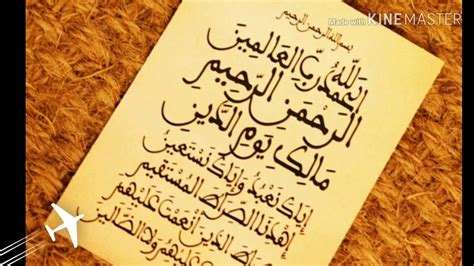 Made with KINEMASTER
بسم الله الرحمن الرحيم
الحمد لله رَبِّ العَالَمِينَ
الرَّحْمَنِ الرَّحِيمِ
مَالِكِ يَوْمِ الدِّينِ
إِيَّاكَ نَعْبُدُ وَإِيَّاكَ نَسْتَعِينُ
اهْدِنَا الصِّرَاطَ المُسْتَقِيمَ
صِرَاطَ الَّذِينَ أَنْعَمْتَ عَلَيْهِمْ
عَلَيْهِمْ وَلَا الضَّالِّينَ